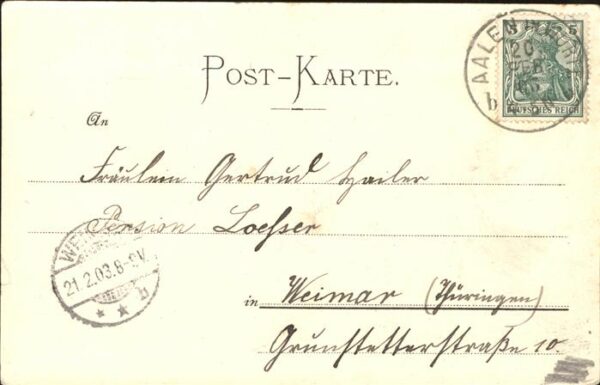 POST-KARTE.
5 5
AALEN
20 FEB
b
DEUTSCHES REICH
An
Fräulein Gertrud Hailer
Pension Loesser
21.2.03.8-9V.
in Weimar (Thüringen)
Grunstetterstraße 10.